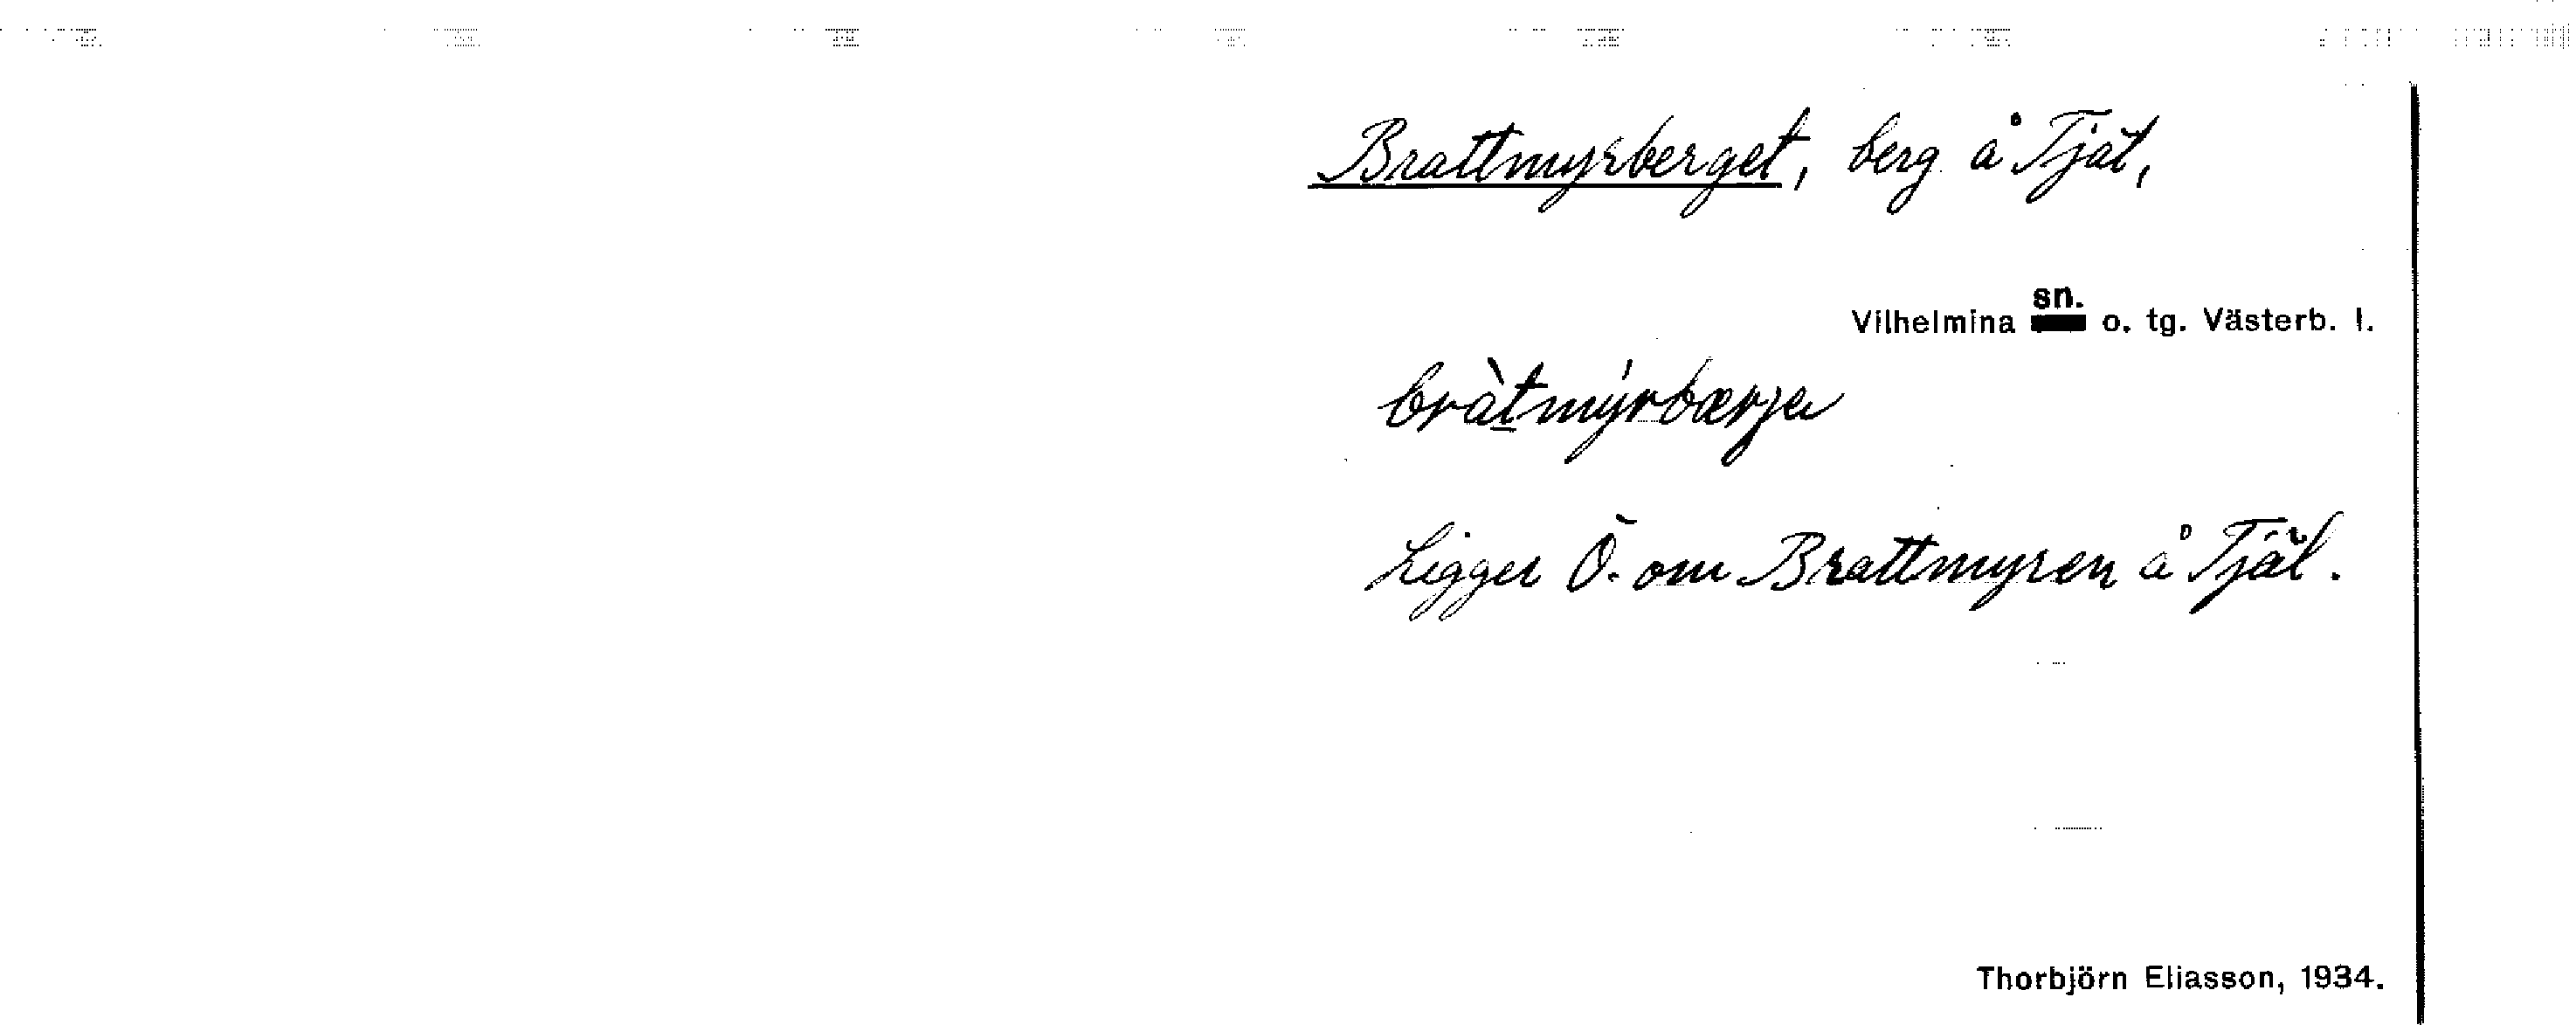 Brattmyrberget, berg å Tjät,
Vilhelmina sn. o. tg. Västerb. l.
bràtmýrbærje
Ligger Ö. om Brattmyren å Tjäl.
Thorbjörn Eliasson, 1934.